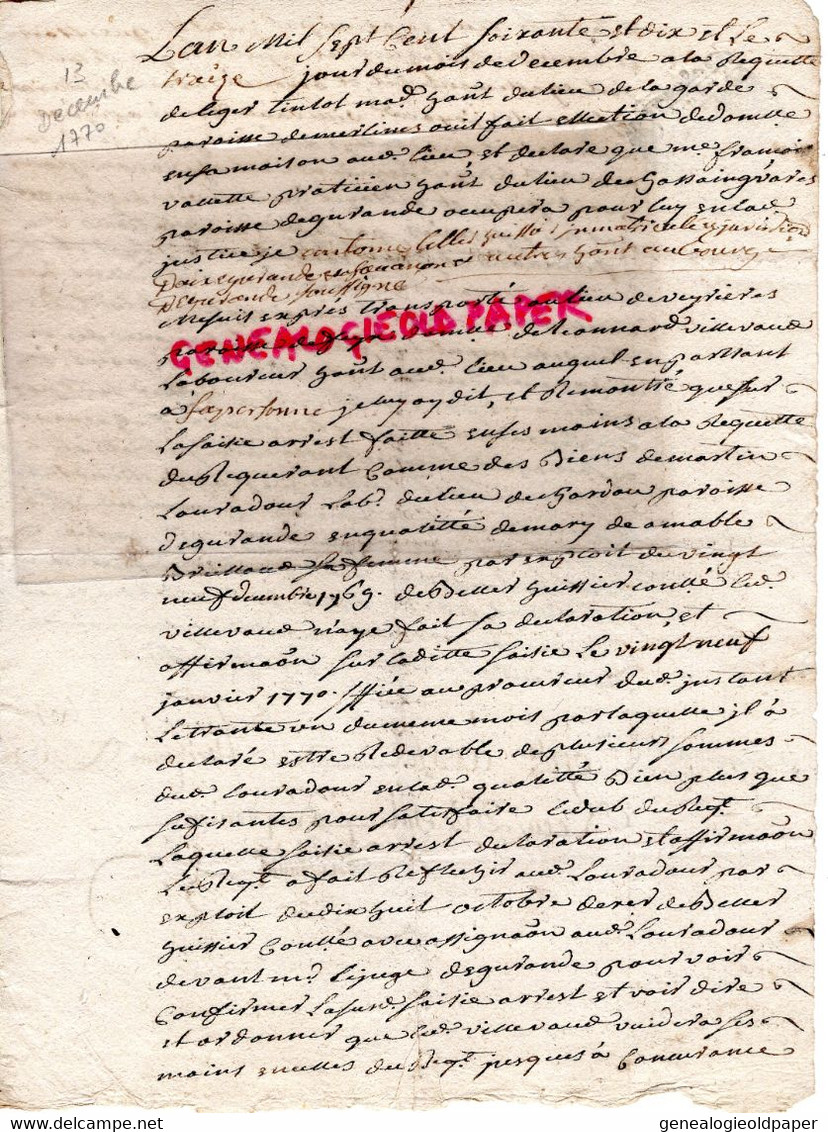 Lan Mil Sept Cent soixante et dix et Le
traize jour du mois de decembre a la Requette
de leger tintot mad. hant du lieu de la garde
paroisse de merlines ou il fait ellection de domlle
en sa maison aud. lieu, et declare que me francois
vallette praticien hant du lieu de
paroisse degurande occupera pour luy en lad.
justice je antoine huissier immatriculé
soussigné
Me suis exprés transporté au lieu de veyrieres
paroisse de de Leonnard villevaud
Laboureur hant aud. lieu auquel en parllant
à sa personne je luy ay dit, et Remontré que sur
La saisie arrest faitte en ses mains a la Requette
du Requerant Comme des Biens de martin
Louradour Lab. du lieu de paroisse
degurande en quallitté de mary de amable
Brillaud sa femme par exploit du vingt
neuf decembre 1769. de Belles huissier conllé led.
villevaud n'aye fait sa declaration, et
affirmaôn sur laditte saisie Le vingt neuf
janvier 1770. au procureur dud. justant
Le trante un du meme mois par laquelle jl à
declaré estre Redevable de plusieurs sommes
dud. Louradour en lad. quallitté Bien plus que
sufisantes pour satisfaire led. dub du Reqt.
Laquelle saisie arrest declaration et affirmaôn
Le Reqt. a fait Reflechir aud. Louradour par
exploit du dix huit octobre der. de Belles
huissier Conllé avec assignaôn aud. Louradour
devant mr. Le juge degurande pour voir
Confirmer La susd. saisie arrest et voir dire
et ordonner que led. villevaud vuidera ses
mains en celles du Reqt. jusques à Concurance
13
decembre
1770
GENEALOGIEOLD PAPER
genealogieoldpaper